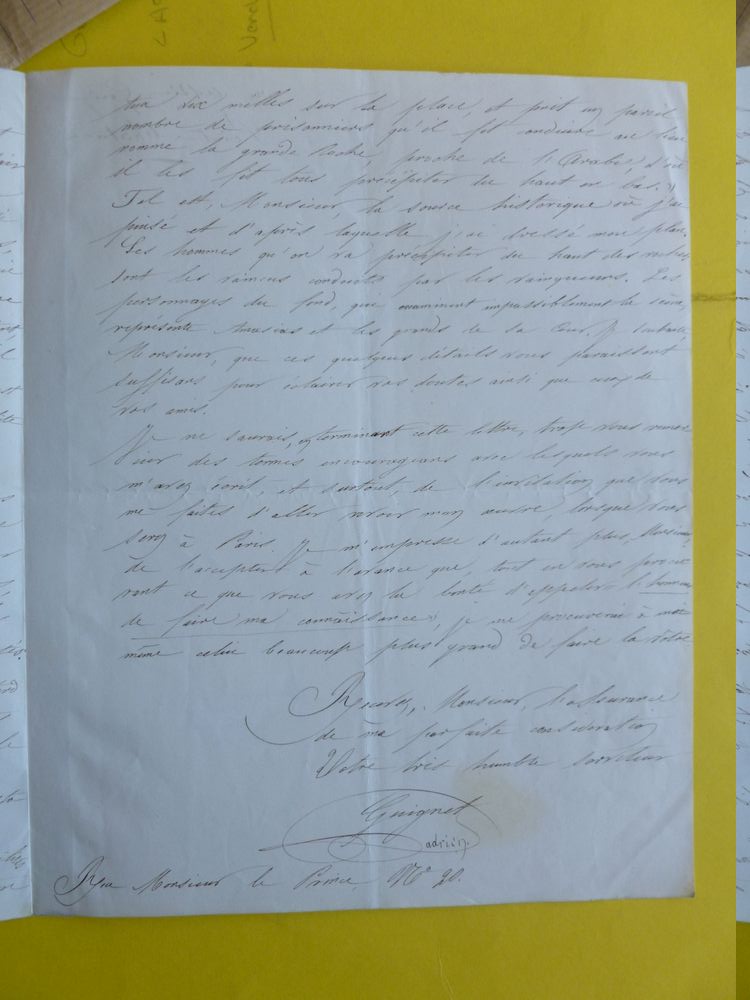 tua dix milles sur la place, et prit un pareil
nombre de prisonniers qu'il fit conduire au lieu
nommé la grande Roche, proche de l'Arabie, d'où
il les fit tous précipiter du haut en bas. »
Tel est, Monsieur, la source historique où j'ai
puisé et d'après laquelle j'ai dressé mon plan.
Les hommes qu'on va précipiter du haut des roches
sont les vaincus conduits par les vainqueurs. Les
personnages du fond, qui examinent impassiblement la scène,
représente Amasias et les grands de sa Cour. Je souhaite,
Monsieur, que ces quelques détails vous paraissent
suffisans pour éclairer vos doutes ainsi que ceux de
vos amis.
Je ne saurais, en terminant cette lettre, trop vous remer
cier des termes encourageans avec lesquels vous
m'avez écrit, et surtout de l'invitation que vous
me faites d'aller revoir mon œuvre, lorsque vous
serez à Paris. Je m'empresse d'autant plus, Monsieur,
de l'accepter à l'avance que, tout en vous procu
rant ce que vous avez la bonté d'appeler l'honneur
de faire ma connaissance, je me procurerai à moi
même celui beaucoup plus grand de faire la vôtre.
Recevez, Monsieur, l'assurance
de ma parfaite considération
Votre très humble serviteur
Guignet
adrien.
Rue Monsieur le Prince, N° 20.